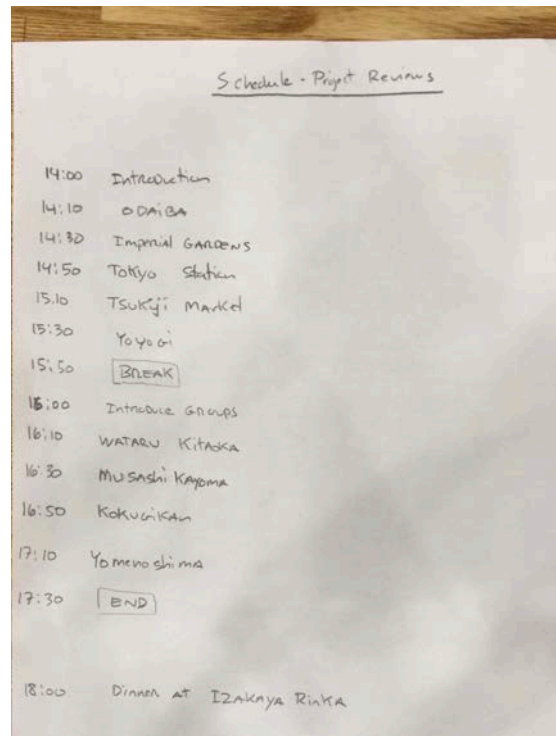 Schedule - Project Reviews
14:00 Introduction
14:10 ODAIBA
14:30 Imperial GARDENS
14:50 Tokyo Station
15.10 Tsukiji Market
15:30 Yoyogi
15:50 BREAK
16:00 Introduce Groups
16:10 WATARU KITAOKA
16:30 MUSAShi KAYOMA
16:50 KOKUGIKAN
17:10 Yomenoshima
17:30 END
18:00 Dinner AT IZAKAYA RinKA